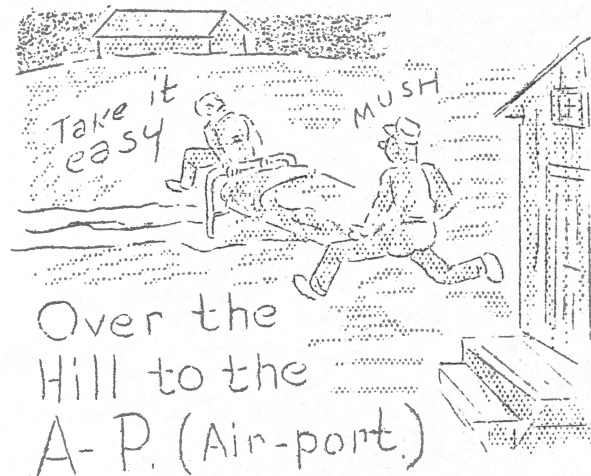 Take it
easy
MUSH
Over the
Hill to the
A-P. (Air-port.)